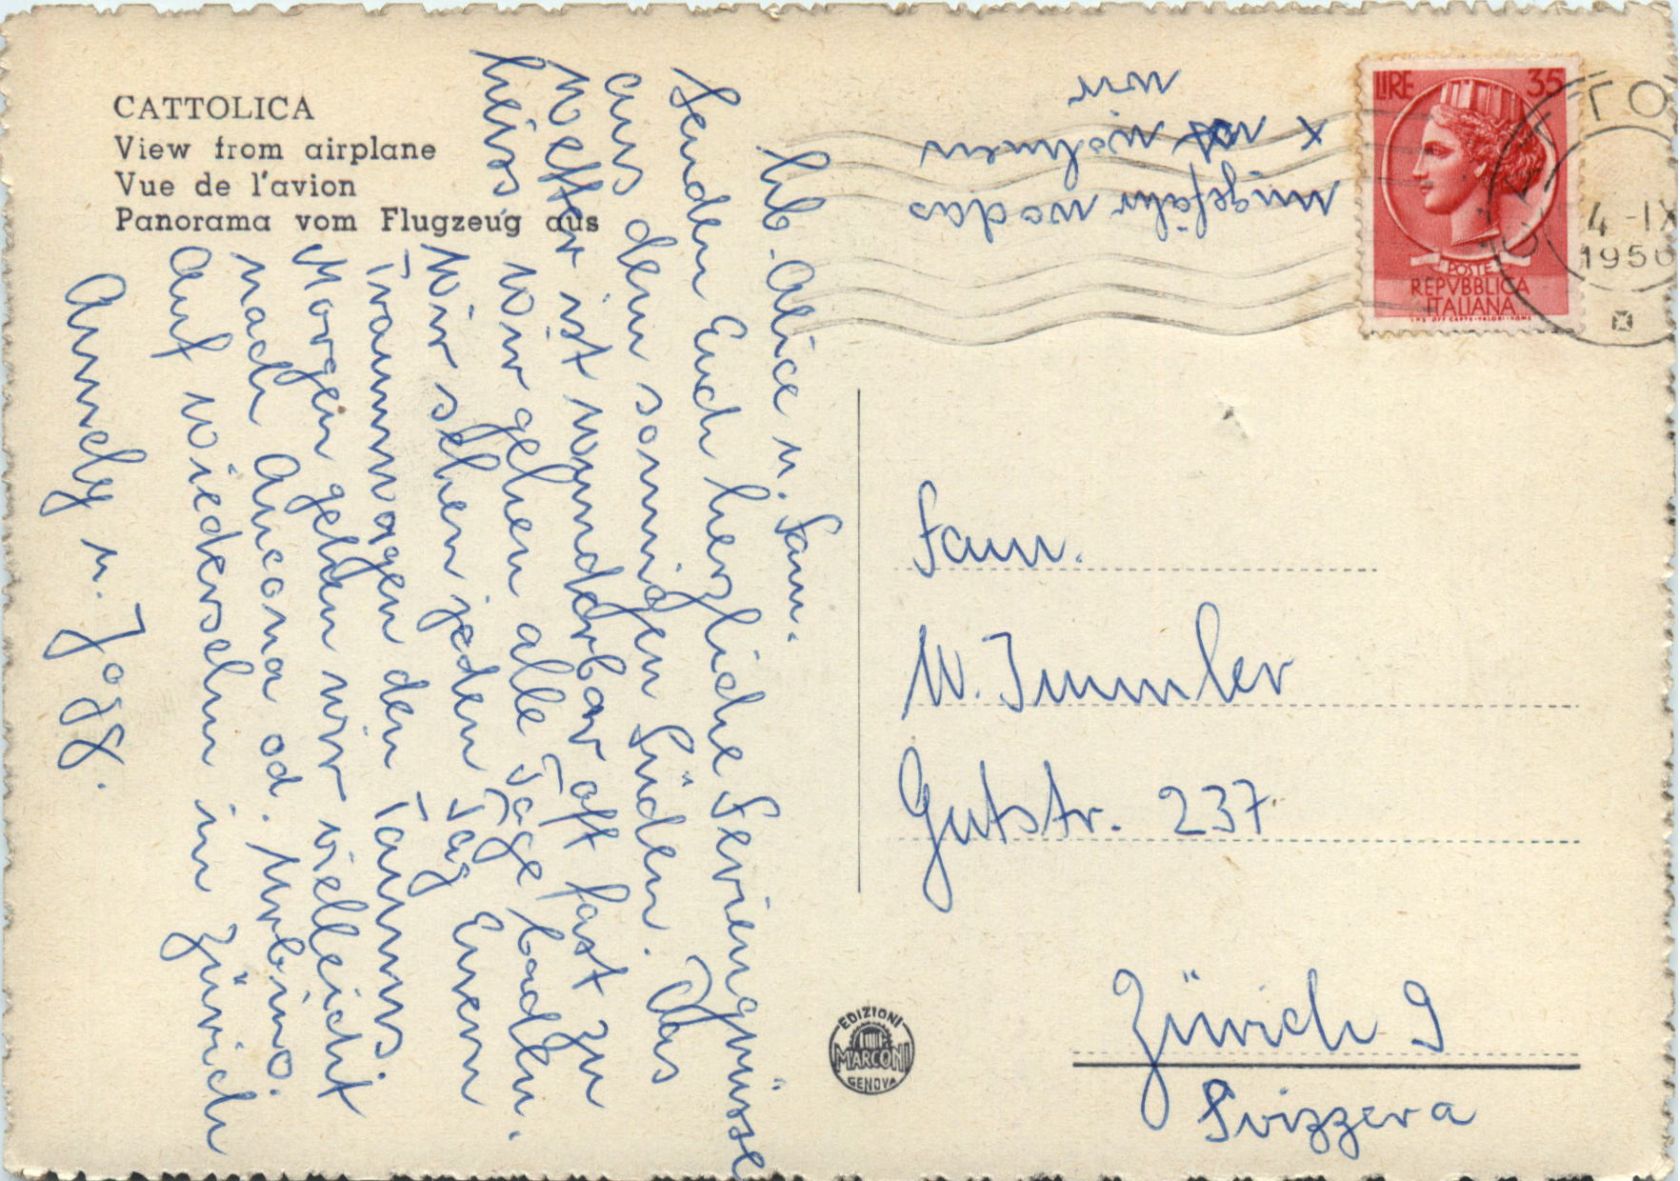 CATTOLICA
View from airplane
Vue de l'avion
Panorama vom Flugzeug aus
lb. Alice u. Fam.
Senden Euch herzliche Feriengrüsse
aus dem sonnigen Süden. Das
Wetter ist wunderbar oft fast zu
heiss,
wir gehen alle Tage baden.
Wir sehen jeden Tag Euern
Traumwagen den Taunus
Morgen gehen wir vielleicht
nach Ancona od. Urbino.
Auf wiedersehn in Zürich
Annely u. Jogg.
ungefähr wo das
x ist wohnen
wir
LIRE 35
POSTE
REPVBBLICA
ITALIANA
4-IX
1956
Fam.
W. Immler
Gutstr. 237
Zürich 9
Svizzera
EDIZIONI
MARCONI
GENOVA